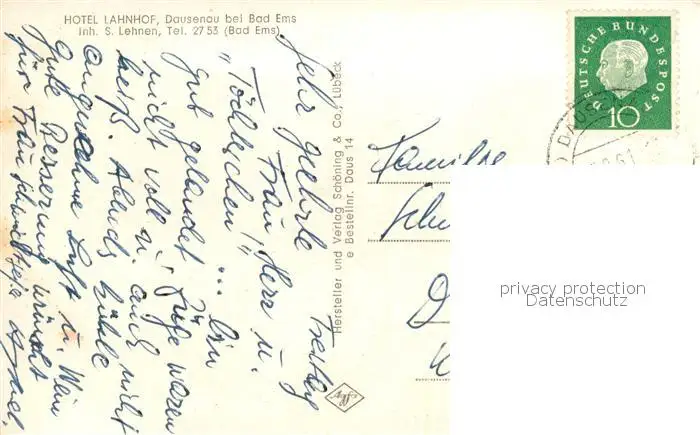 HOTEL LAHNHOF, Dausenau bei Bad Ems
Inh. S. Lehnen, Tel. 27 53 (Bad Ems)
Freitag
Sehr geehrte
Frau, Herr u.
„Töchterchen"!
... bin
gut gelandet, Züge waren
nicht voll u. auch nicht
heiß. Abends kühle
angenehme Luft u. Wein
Gute Besserung wünscht
für Frau
Hersteller und Verlag Schöning & Co., Lübeck
e Bestellnr. Daus 14
Agfa
DEUTSCHE BUNDESPOST
10
DAUSE
61
Familie
Schu
D
privacy protection
Datenschutz